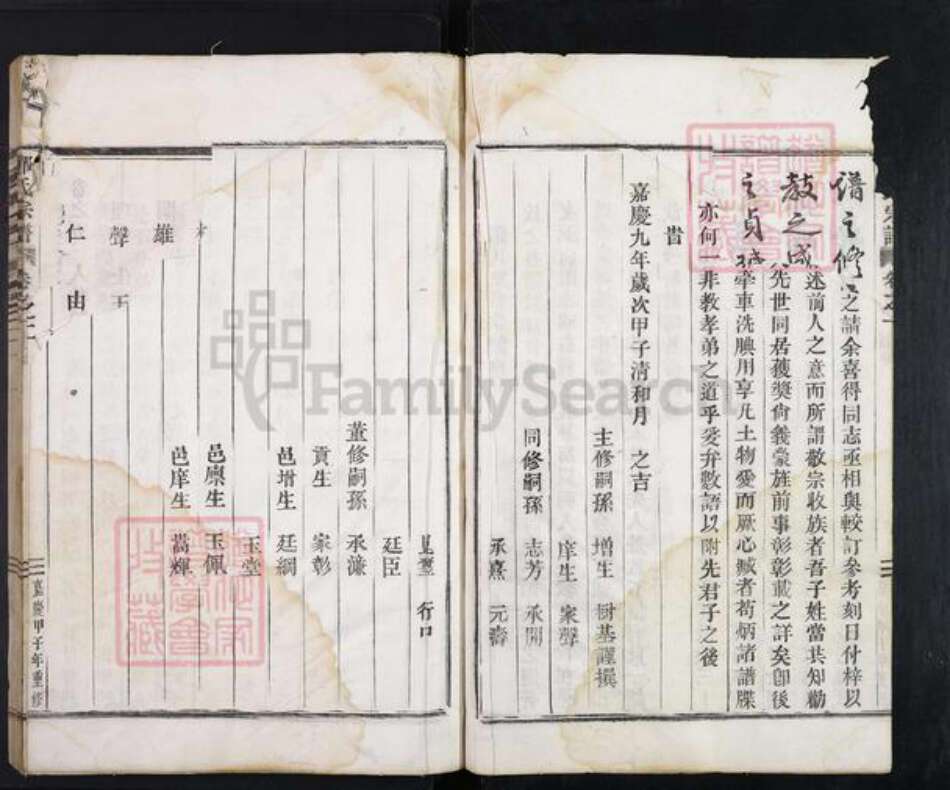 譜之修之請余喜得同志亟相與較訂參考刻日付梓以
述前人之意而所謂敬宗收族者吾子姓當共知勸
教之成
先世同居獲獎尙義蒙旌前事彰彰載之詳矣卽後
之貞
牽車洗腆用享凡土物愛而厥心臧者苟炳諸譜牒
亦何一非教孝弟之道乎爰弁數語以附先君子之後
旹
嘉慶九年歲次甲子清和月 之吉
主修嗣孫 增生 樹基謹撰
庠生 家聲
同修嗣孫 志芳 承開
承熹 元壽
廷臣
董修嗣孫 承濂
貢生 家彰
邑增生 廷綱
玉堂
邑廩生 玉佩
邑庠生 蒿輝
雄
聲
仁由
嘉慶甲子年重修
FamilySearch